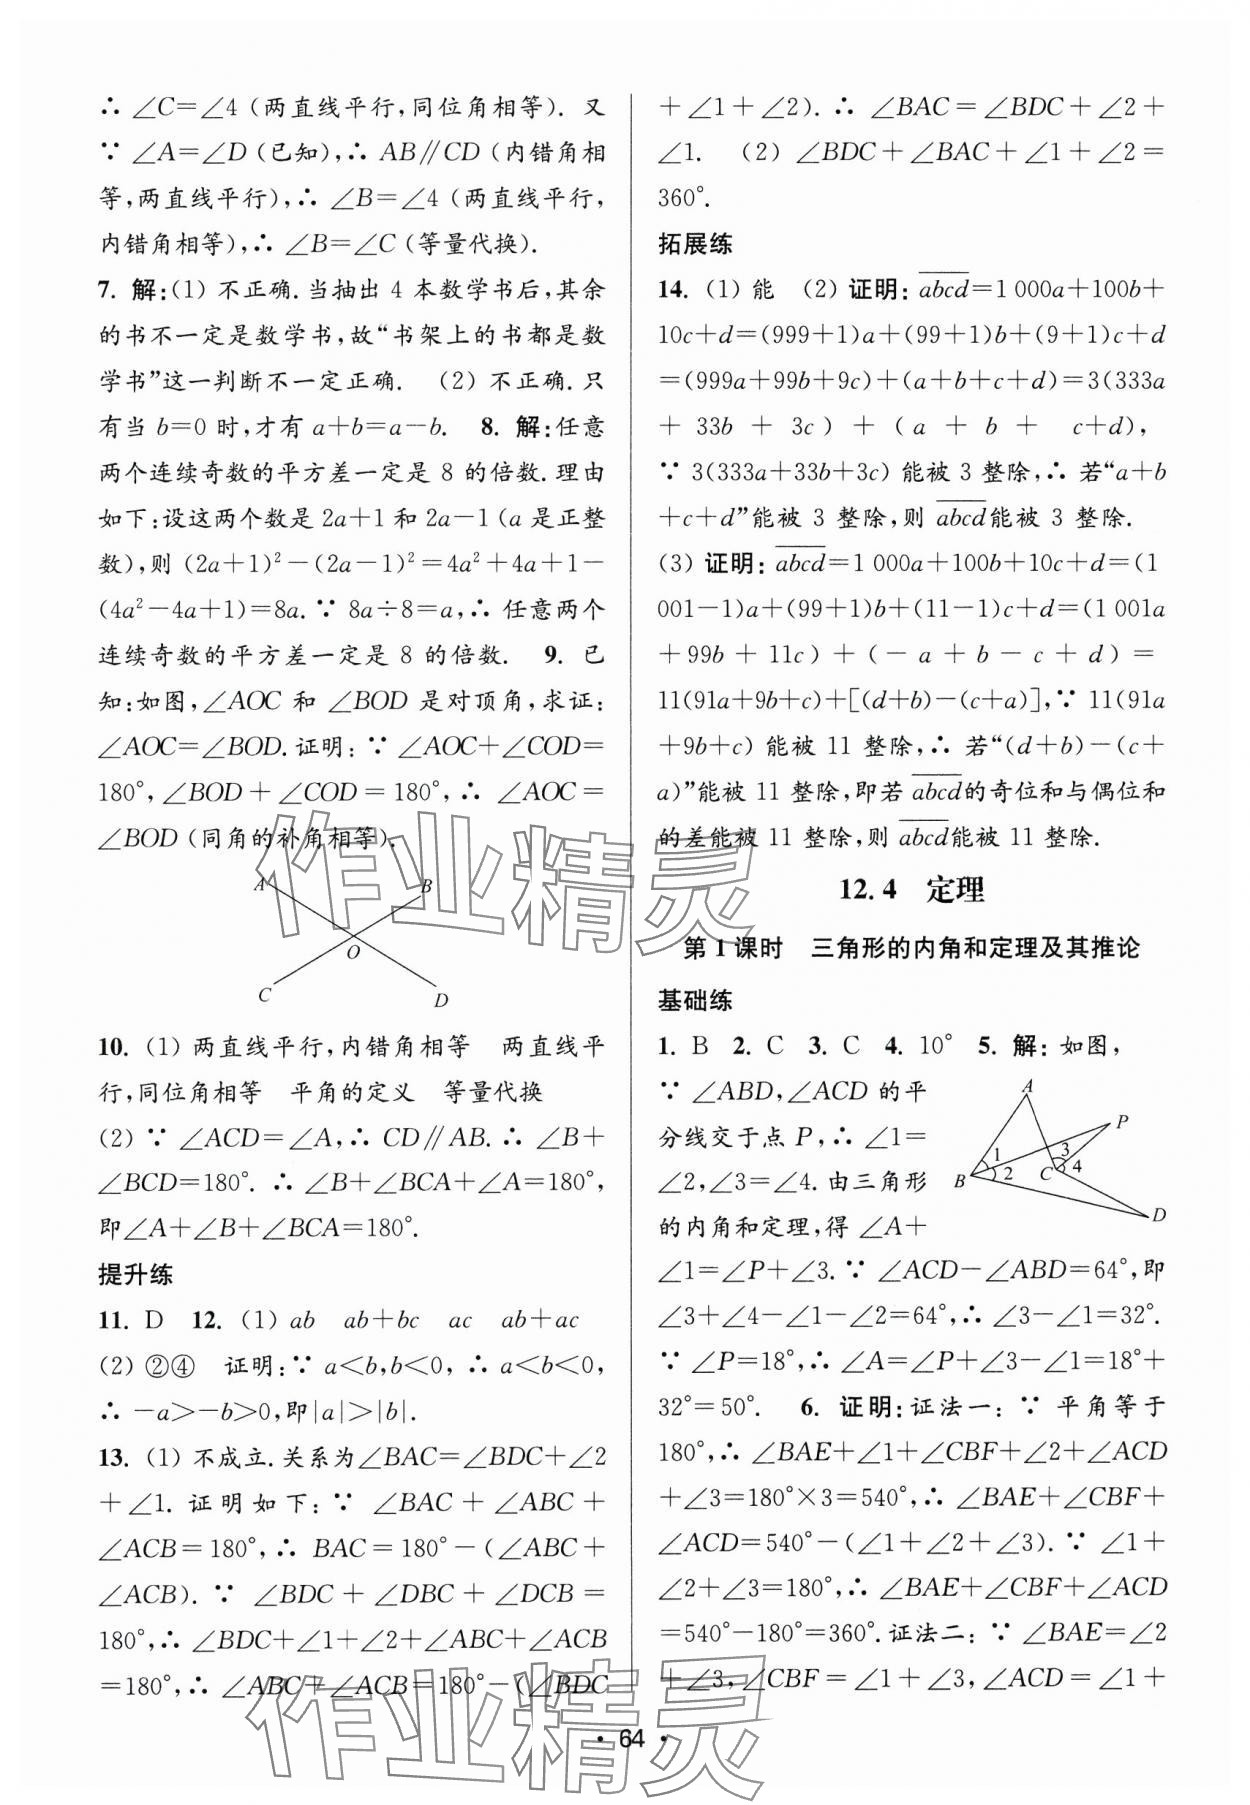 ∴ ∠C=∠4 (两直线平行,同位角相等). 又
∵ ∠A=∠D (已知),∴ AB∥CD (内错角相
等,两直线平行),∴ ∠B=∠4 (两直线平行,
内错角相等),∴ ∠B=∠C (等量代换).
7. 解:(1) 不正确.当抽出 4 本数学书后,其余
的书不一定是数学书,故“书架上的书都是数
学书”这一判断不一定正确. (2) 不正确.只
有当 b=0 时,才有 a+b=a-b. 8. 解:任意
两个连续奇数的平方差一定是 8 的倍数.理由
如下:设这两个数是 2a+1 和 2a-1 (a 是正整
数),则 (2a+1)²-(2a-1)²=4a²+4a+1-
(4a²-4a+1)=8a.∵ 8a÷8=a,∴ 任意两个
连续奇数的平方差一定是 8 的倍数. 9. 已
知:如图,∠AOC 和 ∠BOD 是对顶角,求证:
∠AOC=∠BOD.证明:∵ ∠AOC+∠COD=
180°,∠BOD+∠COD=180°,∴ ∠AOC=
∠BOD (同角的补角相等).
A
B
O
C
D
10. (1) 两直线平行,内错角相等 两直线平
行,同位角相等 平角的定义 等量代换
(2) ∵ ∠ACD=∠A,∴ CD∥AB.∴ ∠B+
∠BCD=180°. ∴ ∠B+∠BCA+∠A=180°,
即∠A+∠B+∠BCA=180°.
提升练
11. D 12. (1) ab ab+bc ac ab+ac
(2) ②④ 证明:∵ a<b,b<0, ∴ a<b<0,
∴ -a>-b>0,即|a|>|b|.
13. (1) 不成立.关系为∠BAC=∠BDC+∠2
+∠1. 证明如下:∵ ∠BAC+∠ABC+
∠ACB=180°,∴ BAC=180°-(∠ABC+
∠ACB). ∵ ∠BDC+∠DBC+∠DCB=
180°,∴ ∠BDC+∠1+∠2+∠ABC+∠ACB
=180°,∴ ∠ABC+∠ACB=180°-(∠BDC
+∠1+∠2). ∴ ∠BAC=∠BDC+∠2+
∠1. (2) ∠BDC+∠BAC+∠1+∠2=
360°.
拓展练
14. (1) 能 (2) 证明:abcd=1 000a+100b+
10c+d=(999+1)a+(99+1)b+(9+1)c+d
=(999a+99b+9c)+(a+b+c+d)=3(333a
+33b+3c)+(a+b+c+d),
∵ 3(333a+33b+3c) 能被 3 整除,∴ 若“a+b
+c+d”能被 3 整除,则 abcd能被 3 整除.
(3) 证明:abcd=1 000a+100b+10c+d=(1
001-1)a+(99+1)b+(11-1)c+d=(1 001a
+99b+11c)+(-a+b-c+d)=
11(91a+9b+c)+[(d+b)-(c+a)],∵ 11(91a
+9b+c) 能被 11 整除,∴ 若“(d+b)-(c+
a)”能被 11 整除,即若 abcd的奇位和与偶位和
的差能被 11 整除,则 abcd能被 11 整除.
12.4 定理
第 1 课时 三角形的内角和定理及其推论
基础练
1. B 2. C 3. C 4. 10° 5. 解:如图,
∵ ∠ABD,∠ACD 的平
分线交于点 P,∴ ∠1=
∠2,∠3=∠4.由三角形
的内角和定理,得 ∠A+
A
P
1
3
B
2
C
4
D
∠1=∠P+∠3.∵ ∠ACD-∠ABD=64°,即
∠3+∠4-∠1-∠2=64°,∴ ∠3-∠1=32°.
∵ ∠P=18°,∴ ∠A=∠P+∠3-∠1=18°+
32°=50°. 6. 证明:证法一:∵ 平角等于
180°,∴ ∠BAE+∠1+∠CBF+∠2+∠ACD
+∠3=180°×3=540°,∴ ∠BAE+∠CBF+
∠ACD=540°-(∠1+∠2+∠3).∵ ∠1+
∠2+∠3=180°,∴ ∠BAE+∠CBF+∠ACD
=540°-180°=360°.证法二:∵ ∠BAE=∠2
+∠3,∠CBF=∠1+∠3,∠ACD=∠1+
· 64 ·
作业精灵
作业精灵